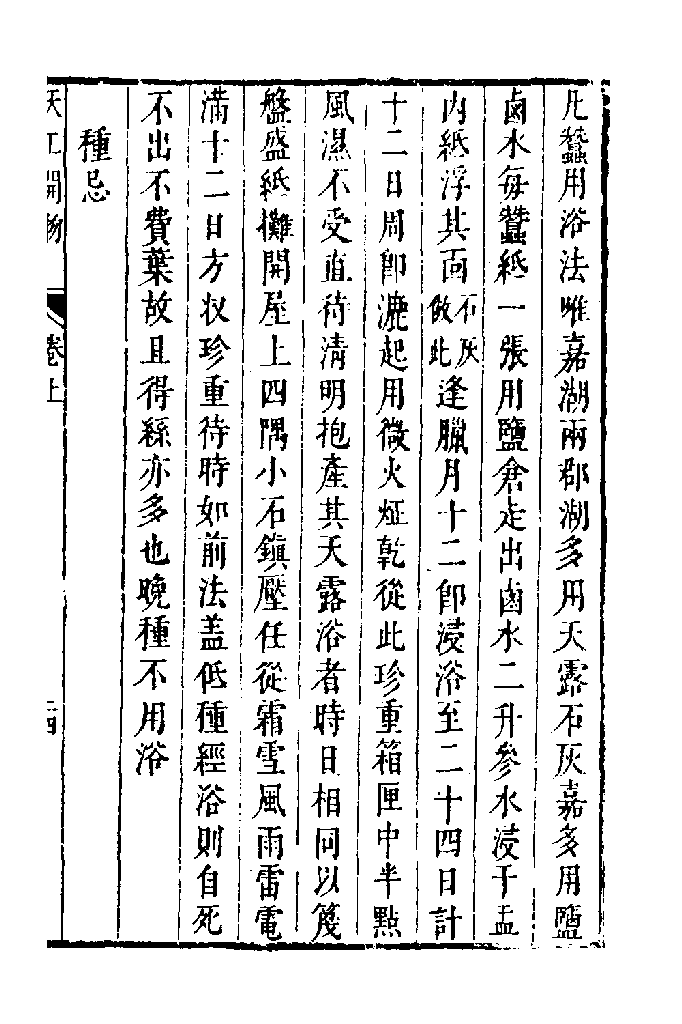 凡蠶用浴法唯嘉湖兩郡湖多用天露石灰嘉多用鹽
鹵水每蠶紙一張用鹽倉走出鹵水二升參水浸于盂
內紙浮其面石灰倣此逢臘月十二即浸浴至二十四日計
十二日周即漉起用微火炡乾從此珍重箱匣中半點
風濕不受直待清明抱產其天露浴者時日相同以篾
盤盛紙攤開屋上四隅小石鎮壓任從霜雪風雨雷電
滿十二日方收珍重待時如前法盖低種經浴則自死
不出不費葉故且得絲亦多也晚種不用浴
種忌
天工開物 卷上